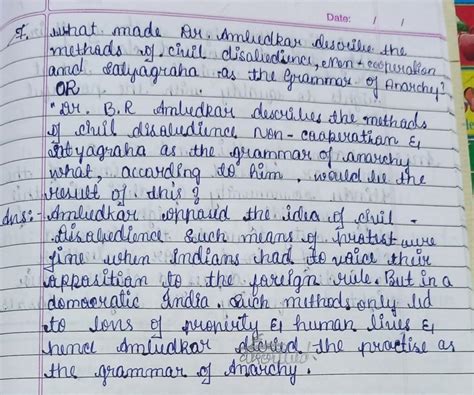 Date: / /
Q. What made Dr. Ambedkar describe the
methods of civil disobedience, Non-cooperation
and Satyagraha as the Grammar of Anarchy?
OR
"Dr. B.R Ambedkar describes the methods
of civil disobedience non-cooperation &
Satyagraha as the grammar of anarchy
what, according to him, would be the
result of this?
Ans:- Ambedkar opposed the idea of civil-
Disobedience such means of protist were
fine when Indians had to voice their
opposition to the foreign rule. But in a
domocratic India. Such methods only led
to loss of proprity & human lives &
hence Ambedkar the practise as
described
the grammar of Anarchy.